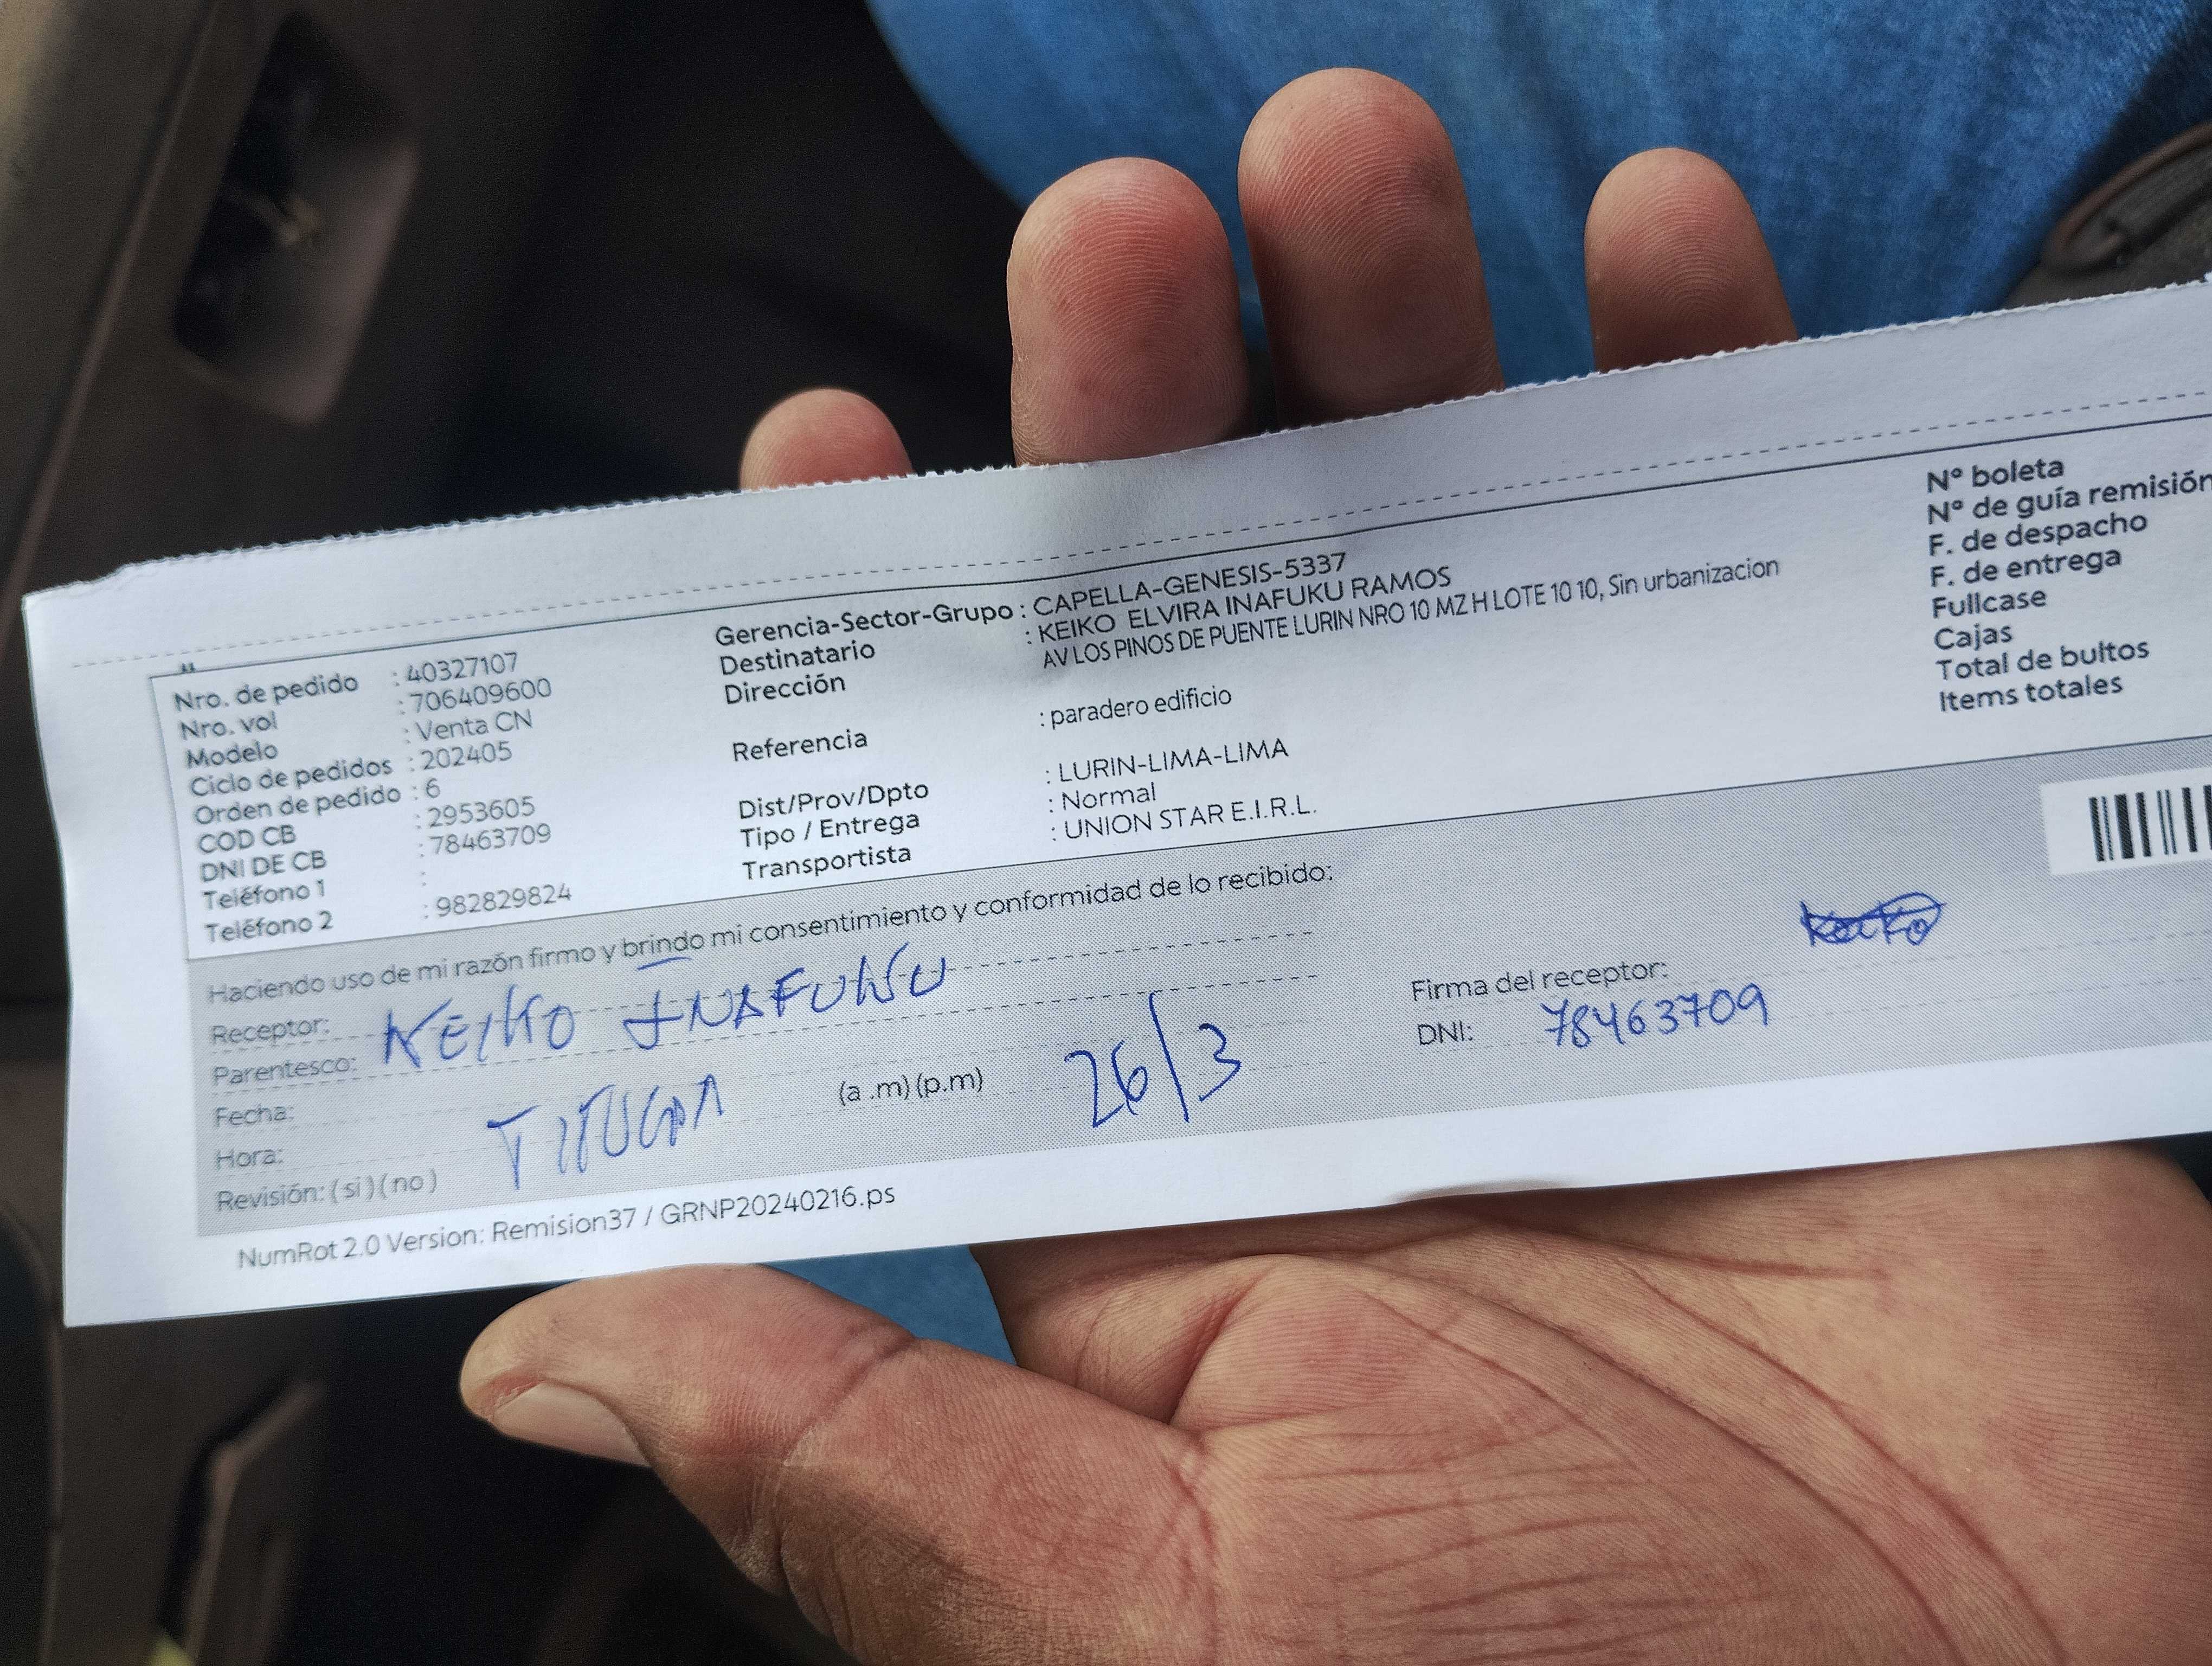 Nro. de pedido : 40327107
Nro. vol : 706409600
Modelo : Venta CN
Ciclo de pedidos : 202405
Orden de pedido : 6
COD CB : 2953605
DNI DE CB : 78463709
Teléfono 1 :
Teléfono 2 : 982829824
Gerencia-Sector-Grupo : CAPELLA-GENESIS-5337
Destinatario : KEIKO ELVIRA INAFUKU RAMOS
Dirección AV LOS PINOS DE PUENTE LURIN NRO 10 MZ H LOTE 10 10, Sin urbanizacion
Referencia : paradero edificio
Dist/Prov/Dpto : LURIN-LIMA-LIMA
Tipo / Entrega : Normal
Transportista : UNION STAR E.I.R.L.
Nº boleta
Nº de guía remisión
F. de despacho
F. de entrega
Fullcase
Cajas
Total de bultos
Items totales
Haciendo uso de mi razón firmo y brindo mi consentimiento y conformidad de lo recibido:
Receptor: KEIKO INAFUKU
Parentesco:
Fecha:
Hora: (a .m) (p.m) 26/3
Revisión: ( si ) ( no ) TITUGAR
Firma del receptor: Keiko
DNI: 78463709
NumRot 2.0 Version: Remision37 / GRNP20240216.ps